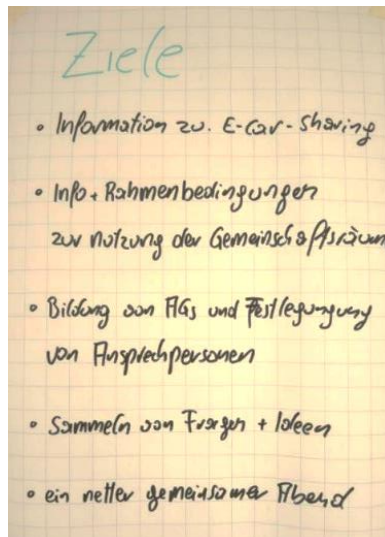 Ziele
• Information zu. E-Car-Sharing
• Info + Rahmenbedingungen
zur Nutzung der Gemeinschaftsräum
• Bildung von AGs und Festlegungung
von Ansprechpersonen
• Sammeln von Fragen + Ideen
• ein netter gemeinsamer Abend